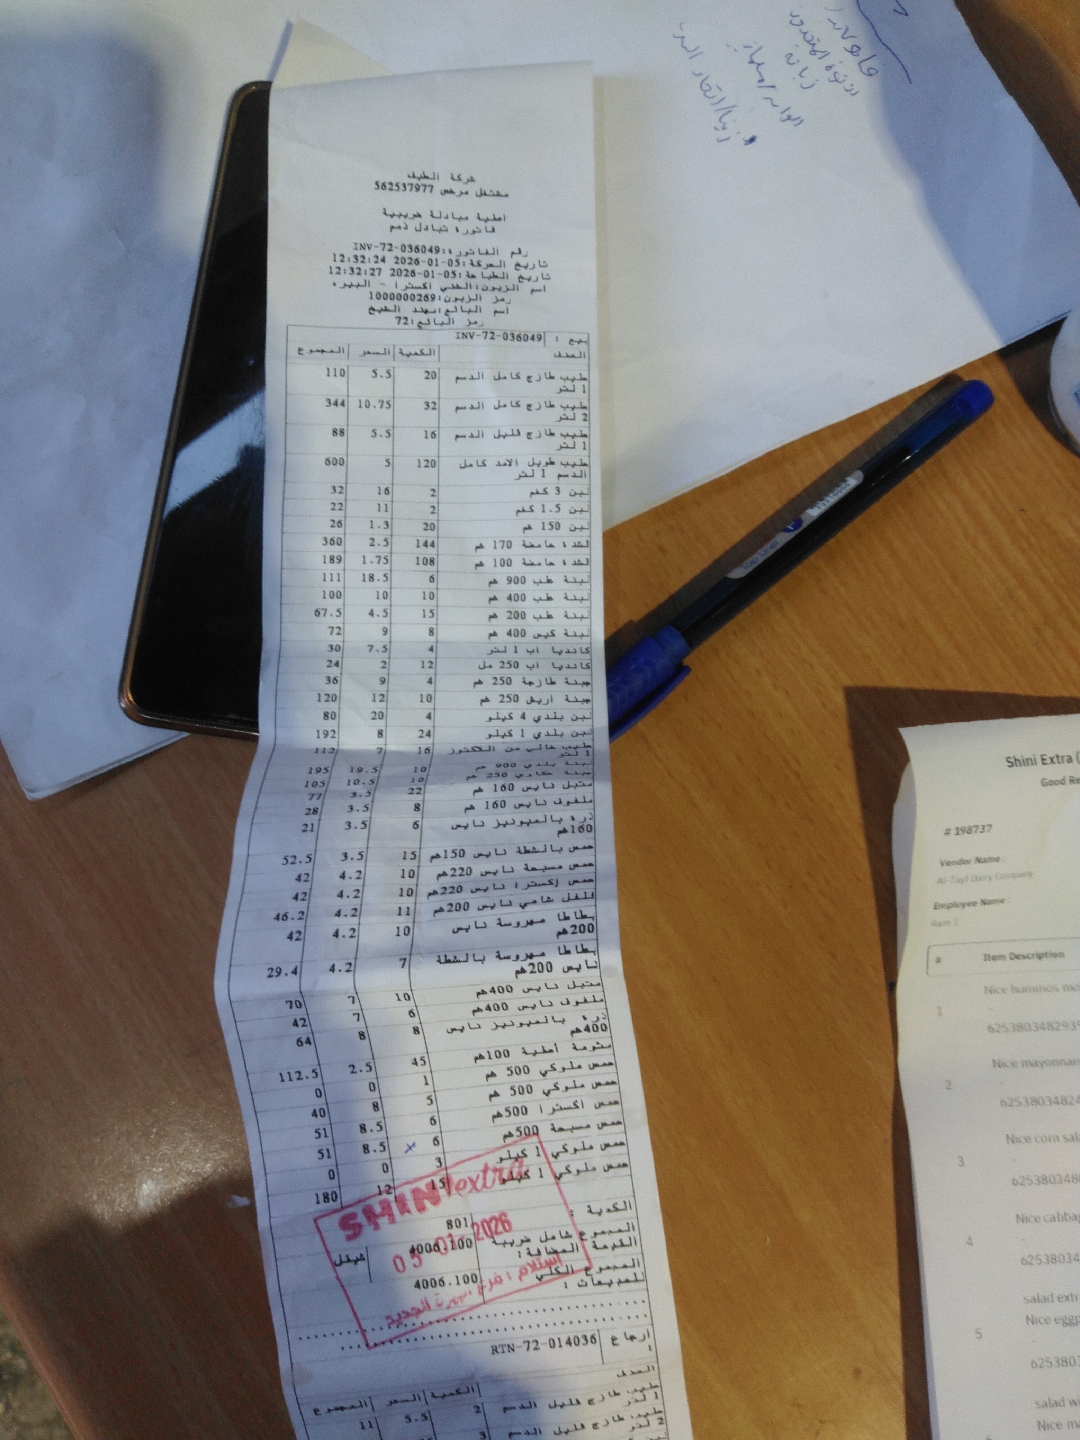 شركة الطيف
مشتغل مرخص 562537977
فاتورة تبادل ذمم
رقم الفاتورة:INV-72-036049
تاريخ الحركة:2026-01-05 12:32:24
تاريخ الطباعة:2026-01-05 12:32:27
اسم الزبون:الشني اكسترا - البيره
رمز الزبون:1000000269
اسم البائع:مهند الشيخ
رمز البائع:72
بيع : INV-72-036049
الصنف الكمية السعر المجموع
حليب طازج كامل الدسم 20 5.5 110
1 لتر
حليب طازج كامل الدسم 32 10.75 344
2 لتر
حليب طازج قليل الدسم 16 5.5 88
1 لتر
حليب طويل الامد كامل 120 5 600
الدسم 1 لتر
لبن 3 كغم 2 16 32
لبن 1.5 كغم 2 11 22
لبن 150 غم 20 1.3 26
قشدة حامضة 170 غم 144 2.5 360
قشدة حامضة 100 غم 108 1.75 189
لبنة علب 900 غم 6 18.5 111
لبنة علب 400 غم 10 10 100
لبنة علب 200 غم 15 4.5 67.5
لبنة كيس 400 غم 8 9 72
كانديا اب 1 لتر 4 7.5 30
كانديا اب 250 مل 12 2 24
جبنة طازجة 250 غم 4 9 36
جبنة اريش 250 غم 10 12 120
لبن بلدي 4 كيلو 4 20 80
لبن بلدي 1 كيلو 24 8 192
حليب خالي من اللكتوز 16 7 112
1 لتر
لبنة بلدي 900 غم 10 19.5 195
جبنة 250 غم 10 10.5 105
متبل نايس 160 غم 22 3.5 77
ملفوف نايس 160 غم 8 3.5 28
ذره بالميونيز نايس 6 3.5 21
160غم
حمص بالشطة نايس 150غم 15 3.5 52.5
حمص مسبحة نايس 220غم 10 4.2 42
حمص إكسترا نايس 220غم 10 4.2 42
فلفل شامي نايس 200غم 11 4.2 46.2
بطاطا مهروسة نايس 10 4.2 42
200غم
بطاطا مهروسة بالشطة 7 4.2 29.4
نايس 200غم
متبل نايس 400غم 10 7 70
ملفوف نايس 400غم 6 7 42
ذره بالميونيز نايس 8 8 64
400غم
مثومة أصلية 100غم 45 2.5 112.5
حمص ملوكي 500 غم 1 0 0
حمص ملوكي 500 غم 5 8 40
حمص اكسترا 500غم 6 8.5 51
حمص مسبحة 500غم 6 8.5 51
حمص ملوكي 1 كيلو 3 0 0
حمص ملوكي 1 كيلو 15 12 180
الكمية : 801
المجموع شامل ضريبة 4006.100 شيكل
القيمة المضافة:
المجموع الكلي 4006.100
للمبيعات :
SHINI extra
05 -01- 2026
استلام : فرع الجديد
ارجاع : RTN-72-014036
الصنف الكمية السعر المجموع
حليب طازج قليل الدسم 2 5.5 11
1 لتر
حليب طازج قليل الدسم 3
2 لتر
Shini Extra (
Good Re
# 198737
Vendor Name :
Al-Tayf Dairy Company
Employee Name :
Ram 1
# Item Description
1 Nice hummos mo
6253803482939
2 Nice mayonnais
62538034824
3 Nice corn sala
625380348
4 Nice cabbag
62538034
salad extr
5 Nice eggp
6253803
salad wi
Nice ma